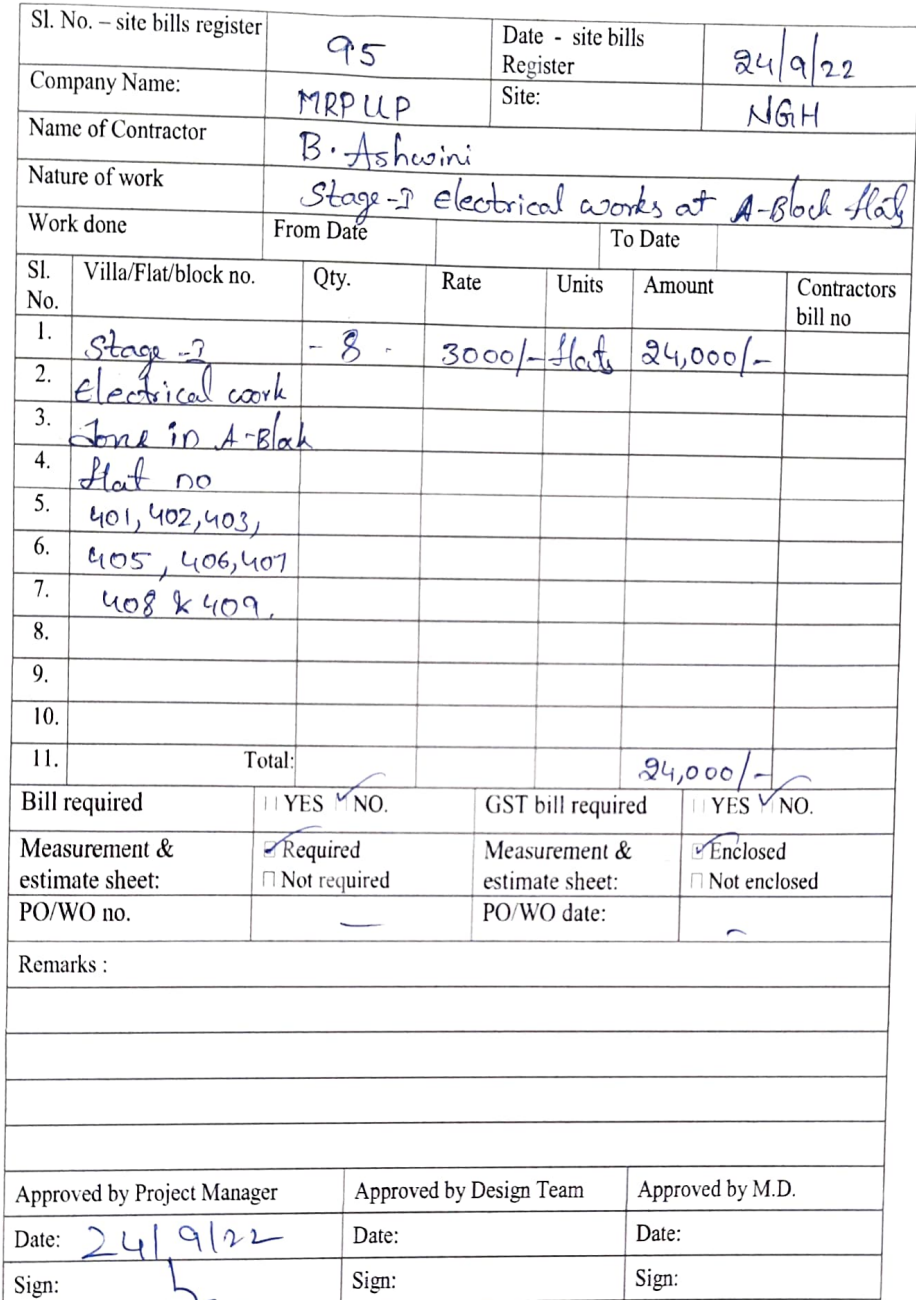 Sl. No. – site bills register 95 Date - site bills Register 24/9/22
Company Name: MRPUP Site: NGH
Name of Contractor B. Ashwini
Nature of work Stage-I electrical works at A-Block flats
Work done From Date To Date
Sl. No. Villa/Flat/block no. Qty. Rate Units Amount Contractors bill no
1. Stage -I - 8 - 3000/- flats 24,000/-
2. Electrical work
3. done in A-Block
4. flat no
5. 401, 402, 403,
6. 405, 406, 407
7. 408 & 409.
8.
9.
10.
11. Total: 24,000/-
Bill required ☐ YES ☑ NO. GST bill required ☐ YES ☑ NO.
Measurement & estimate sheet: ☑ Required ☐ Not required Measurement & estimate sheet: ☑ Enclosed ☐ Not enclosed
PO/WO no. — PO/WO date: -
Remarks :
Approved by Project Manager Approved by Design Team Approved by M.D.
Date: 24/9/22 Date: Date:
Sign: Sign: Sign: